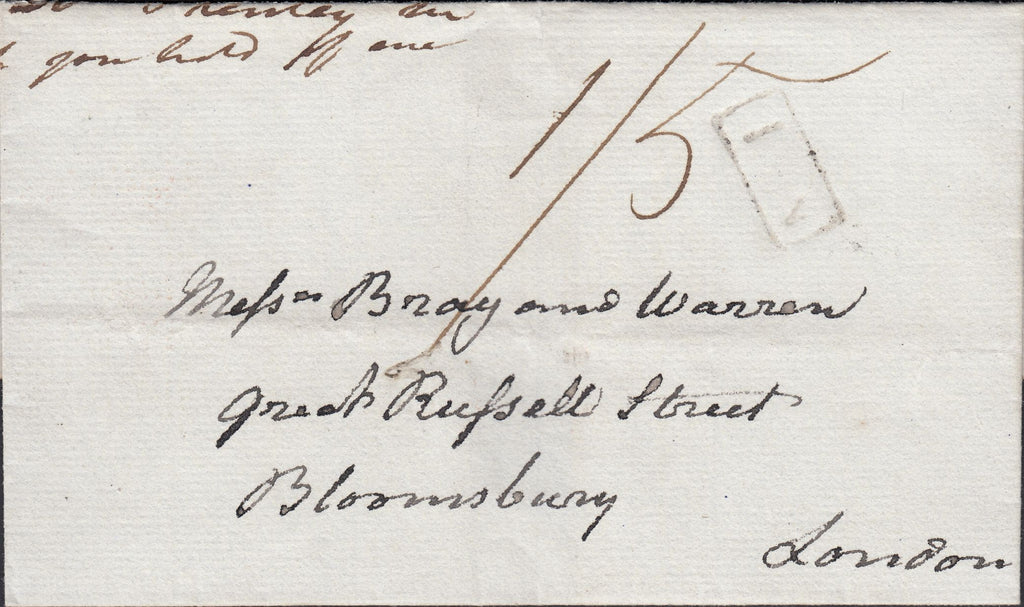 you hold off me
1/5
Messrs Bray and Warren
Great Russell Street
Bloomsbury
London